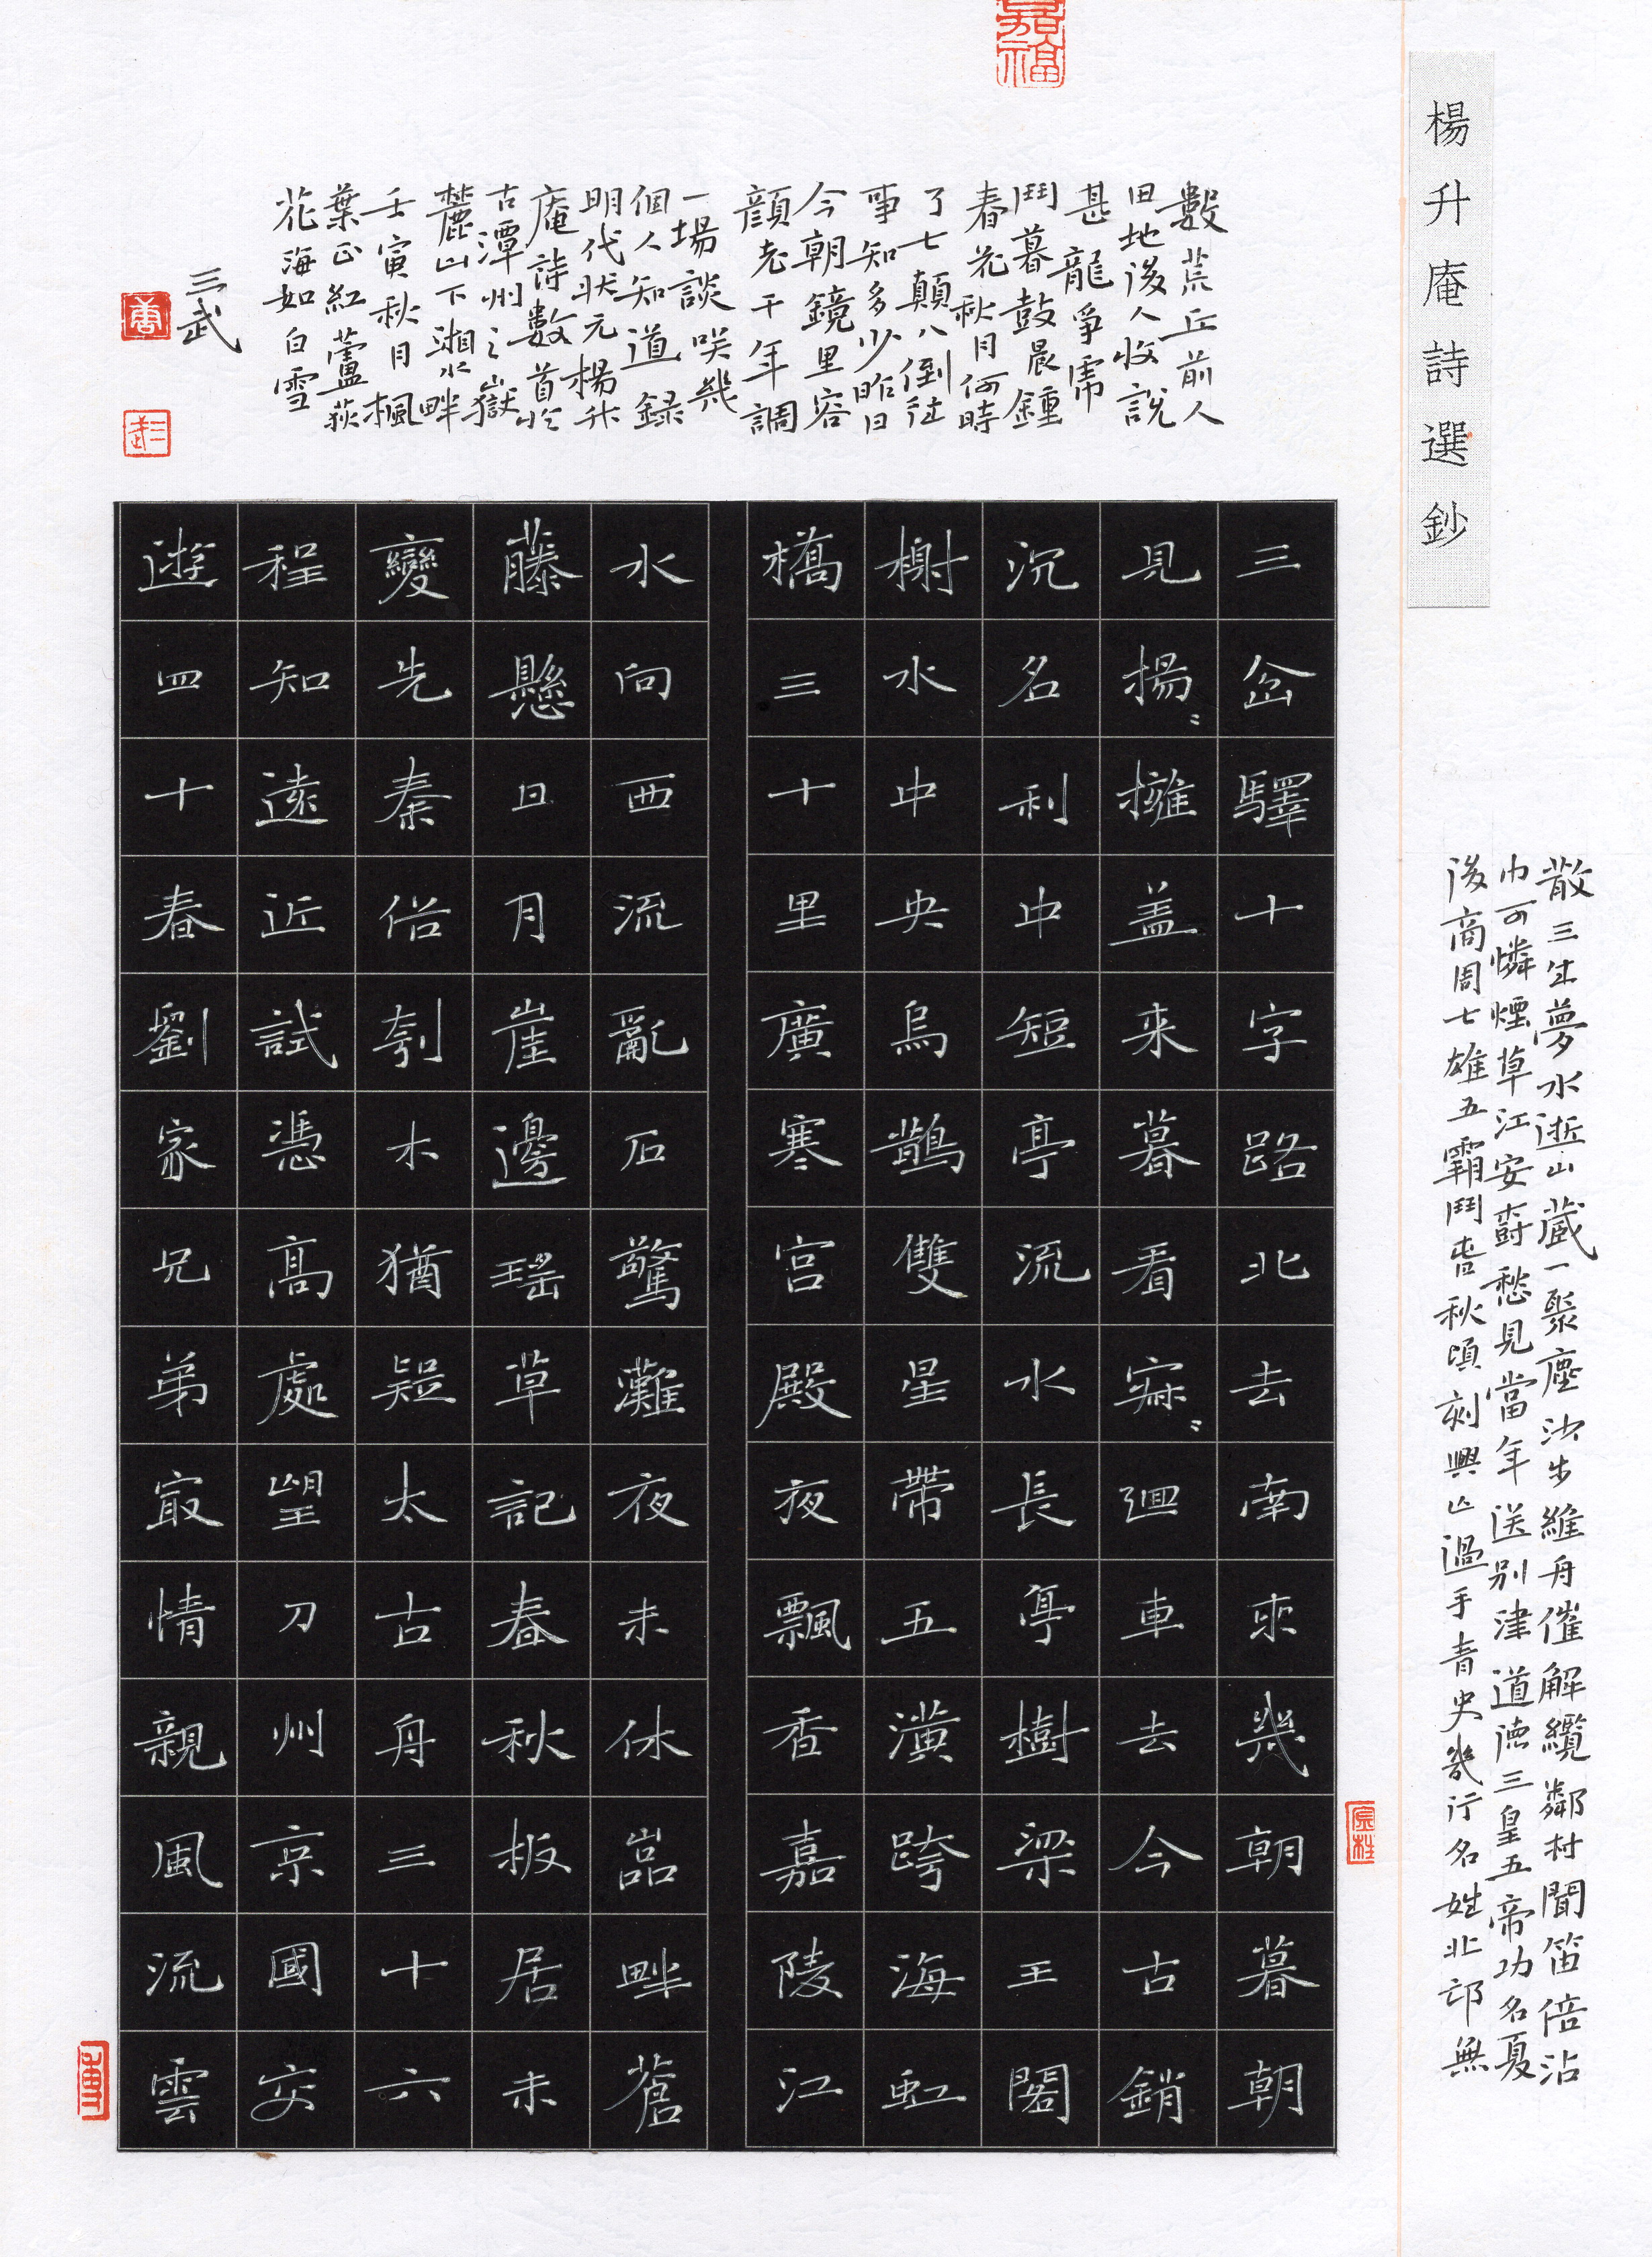 楊升庵詩選鈔
散三生夢水逝山藏一聚塵沙步維舟催解纜鄰村聞笛倍沾
巾可憐煙草江安壽愁見當年送別津道德三皇五帝功名夏
後商周七雄五霸鬥春秋頃刻興亡過手青史幾行名姓北邙無
數荒丘前人
田地後人收說
甚龍爭虎
鬥暮鼓晨鐘
春花秋月何時
了七顛八倒往
事知多少昨日
今朝鏡里容
顏老千年調
一場談笑幾
個人知道錄
明代狀元楊升
庵詩數首於
古潭州之嶽
麓山下湘水畔
壬寅秋月楓
葉正紅蘆荻
花海如白雪
三武
三岔驛十字路北去南來幾朝暮朝
見揚〻擁盖来暮看寂〻廻車去今古銷
沉名利中短亭流水長亭樹梁王閣
榭水中央烏鵲雙星帶五潢跨海虹
橋三十里廣寒宮殿夜飄香嘉陵江
水向西流亂石驚灘夜未休嵓畔蒼
藤懸日月崖邊瑤草記春秋板居未
變先秦俗刳木猶疑太古舟三十六
程知遠近試憑高處望刀州京國交
遊四十春劉家兄弟最情親風流雲